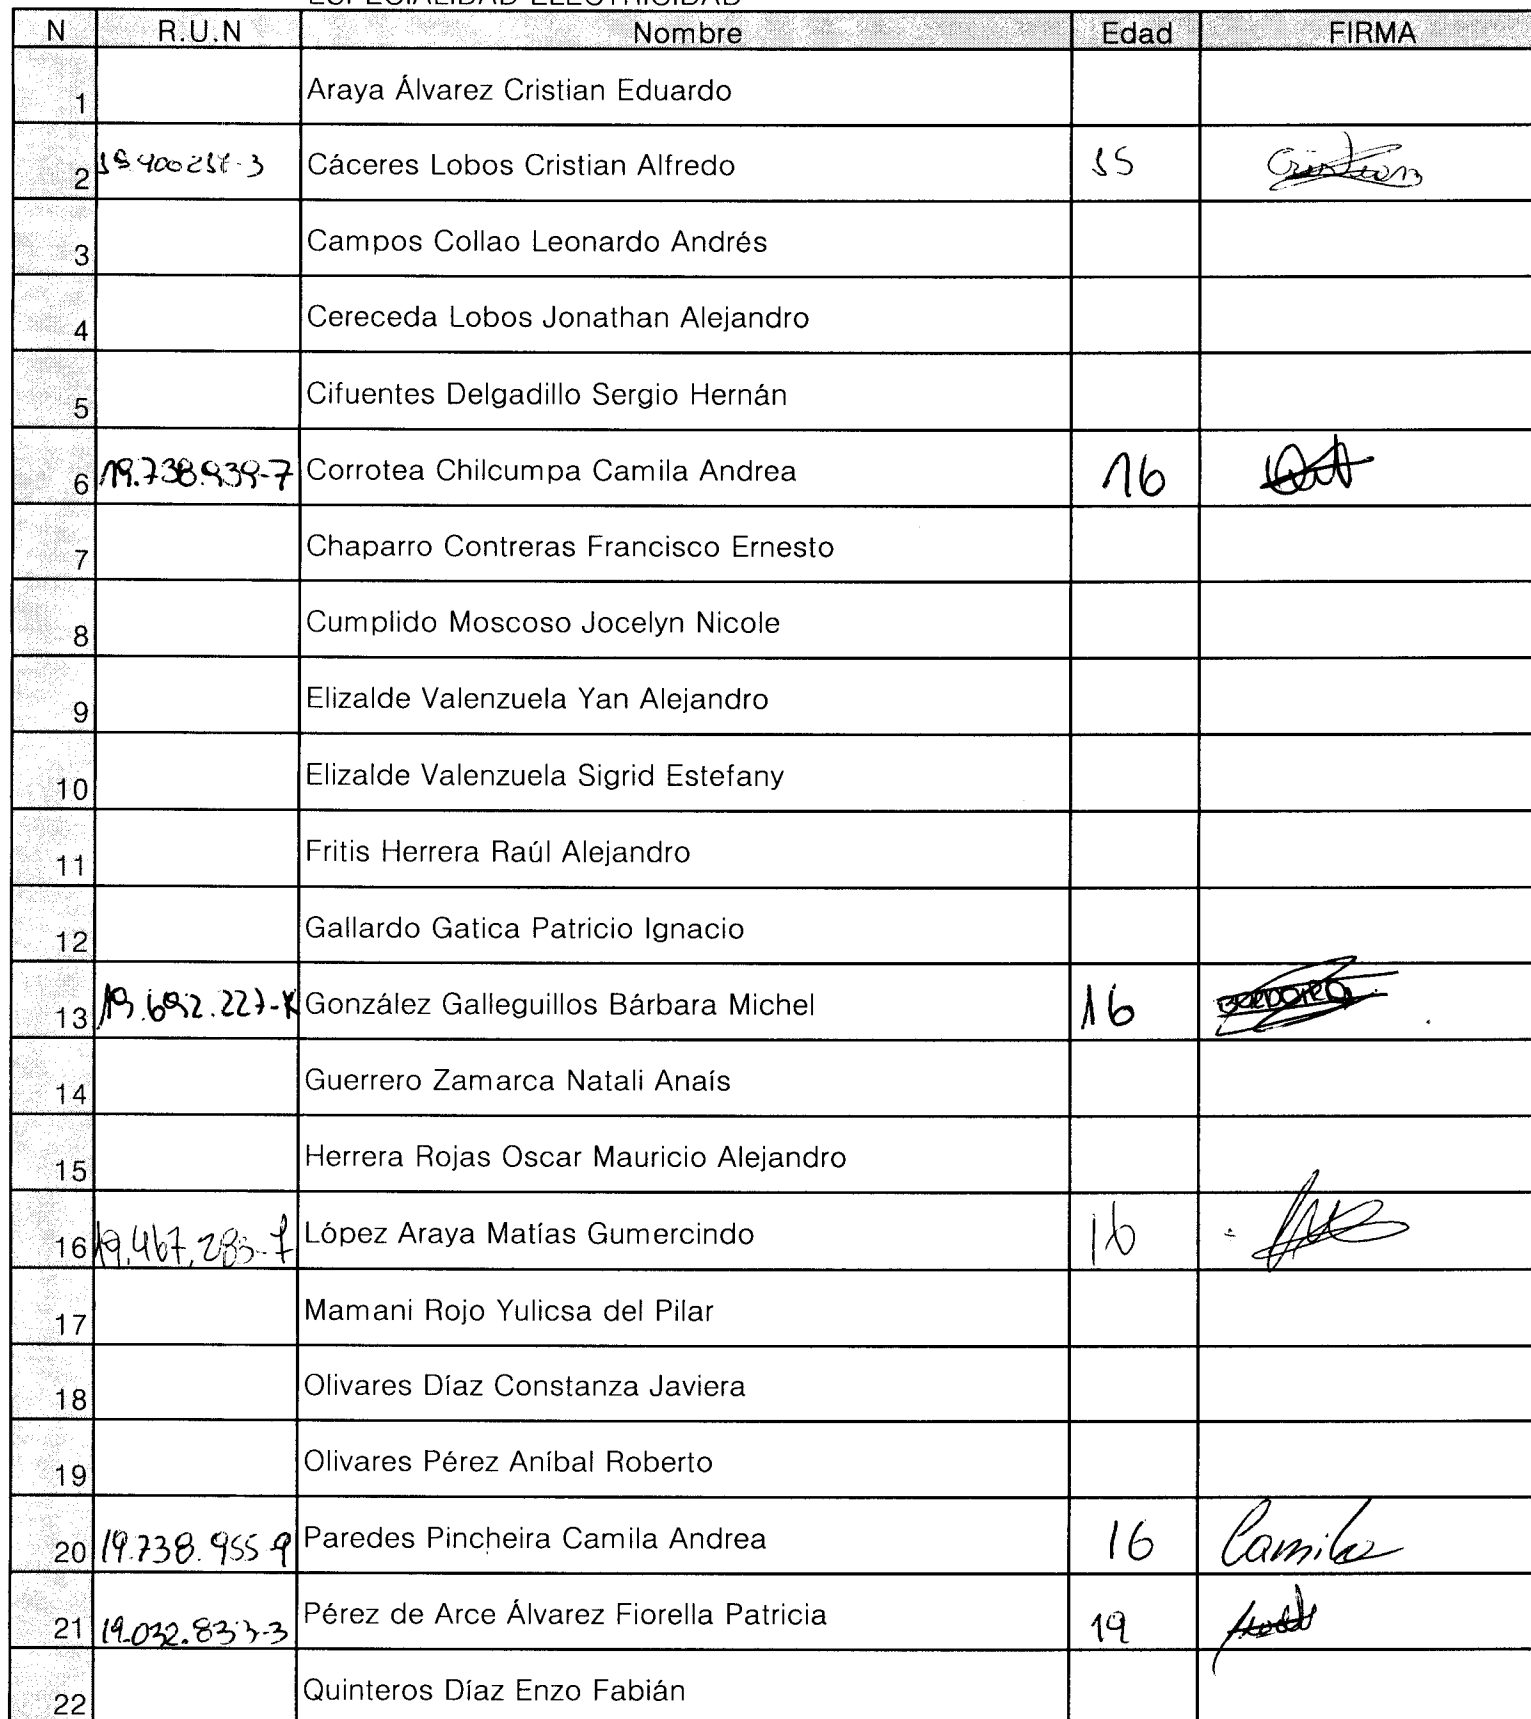 ESPECIALIDAD ELECTRICIDAD
N R.U.N Nombre Edad FIRMA
1 Araya Álvarez Cristian Eduardo
2 Cáceres Lobos Cristian Alfredo 15 Cristian
3 Campos Collao Leonardo Andrés
4 Cereceda Lobos Jonathan Alejandro
5 Cifuentes Delgadillo Sergio Hernán
6 19.738.939-7 Corrotea Chilcumpa Camila Andrea 16
7 Chaparro Contreras Francisco Ernesto
8 Cumplido Moscoso Jocelyn Nicole
9 Elizalde Valenzuela Yan Alejandro
10 Elizalde Valenzuela Sigrid Estefany
11 Fritis Herrera Raúl Alejandro
12 Gallardo Gatica Patricio Ignacio
13 19.692.227-K González Galleguillos Bárbara Michel 16
14 Guerrero Zamarca Natali Anaís
15 Herrera Rojas Oscar Mauricio Alejandro
16 19.467.283-7 López Araya Matías Gumercindo 16
17 Mamani Rojo Yulicsa del Pilar
18 Olivares Díaz Constanza Javiera
19 Olivares Pérez Aníbal Roberto
20 19.738.955-9 Paredes Pincheira Camila Andrea 16 Camila
21 Pérez de Arce Álvarez Fiorella Patricia 19
22 Quinteros Díaz Enzo Fabián